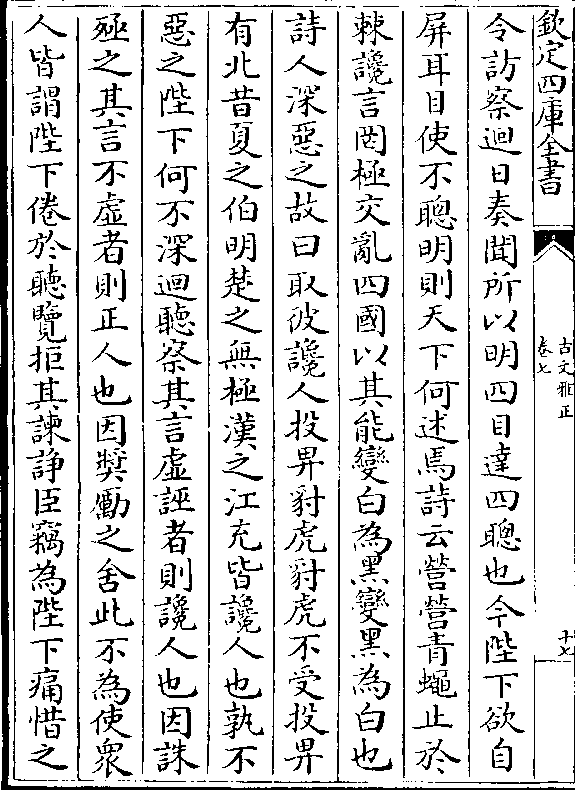 欽定四庫全書
古文雅正
卷七
十七
令訪察迴日奏聞所以明四目達四聰也今陛下欲自
屏耳目使不聰明則天下何述焉詩云營營青蠅止於
棘讒言罔極交亂四國以其能變白為黑變黑為白也
詩人深惡之故曰取彼讒人投畀豺虎豺虎不受投畀
有北昔夏之伯明楚之無極漢之江充皆讒人也孰不
惡之陛下何不深迴聽察其言虛誣者則讒人也因誅
殛之其言不虛者則正人也因獎勵之舍此不為使衆
人皆謂陛下倦於聽覽拒其諫諍臣竊為陛下痛惜之